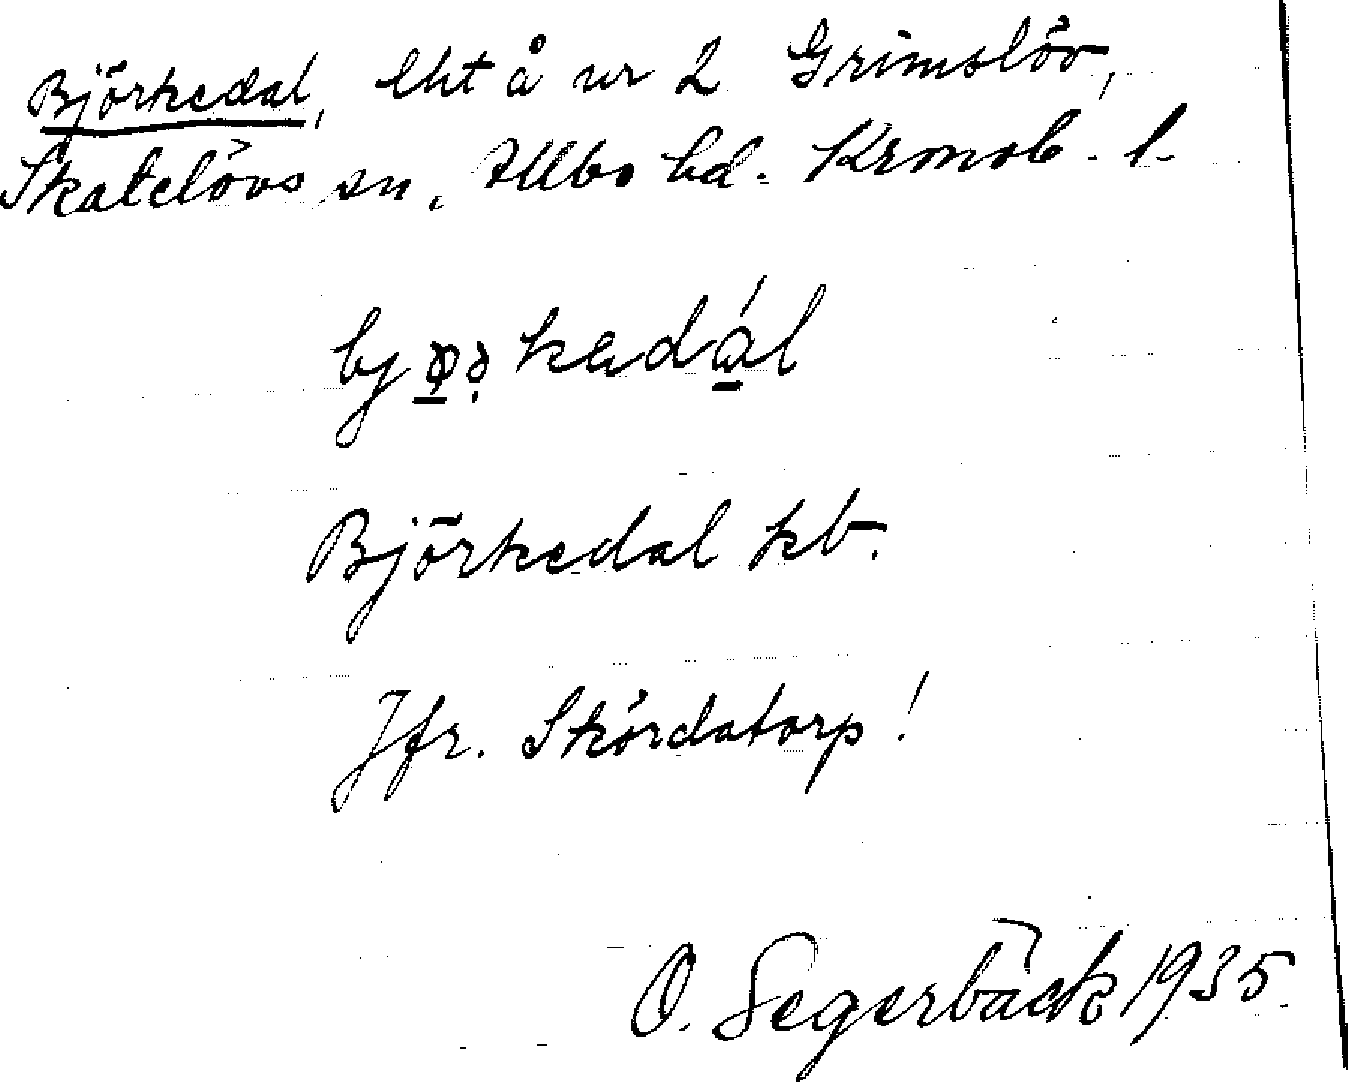 Björkedal, lht å nr 2 Grimslöv,
Skatelövs sn, Allbo hd. Kronob. l.
Björkedal kb.
Jfr. Skördatorp!
O. Segerbäck 1935.